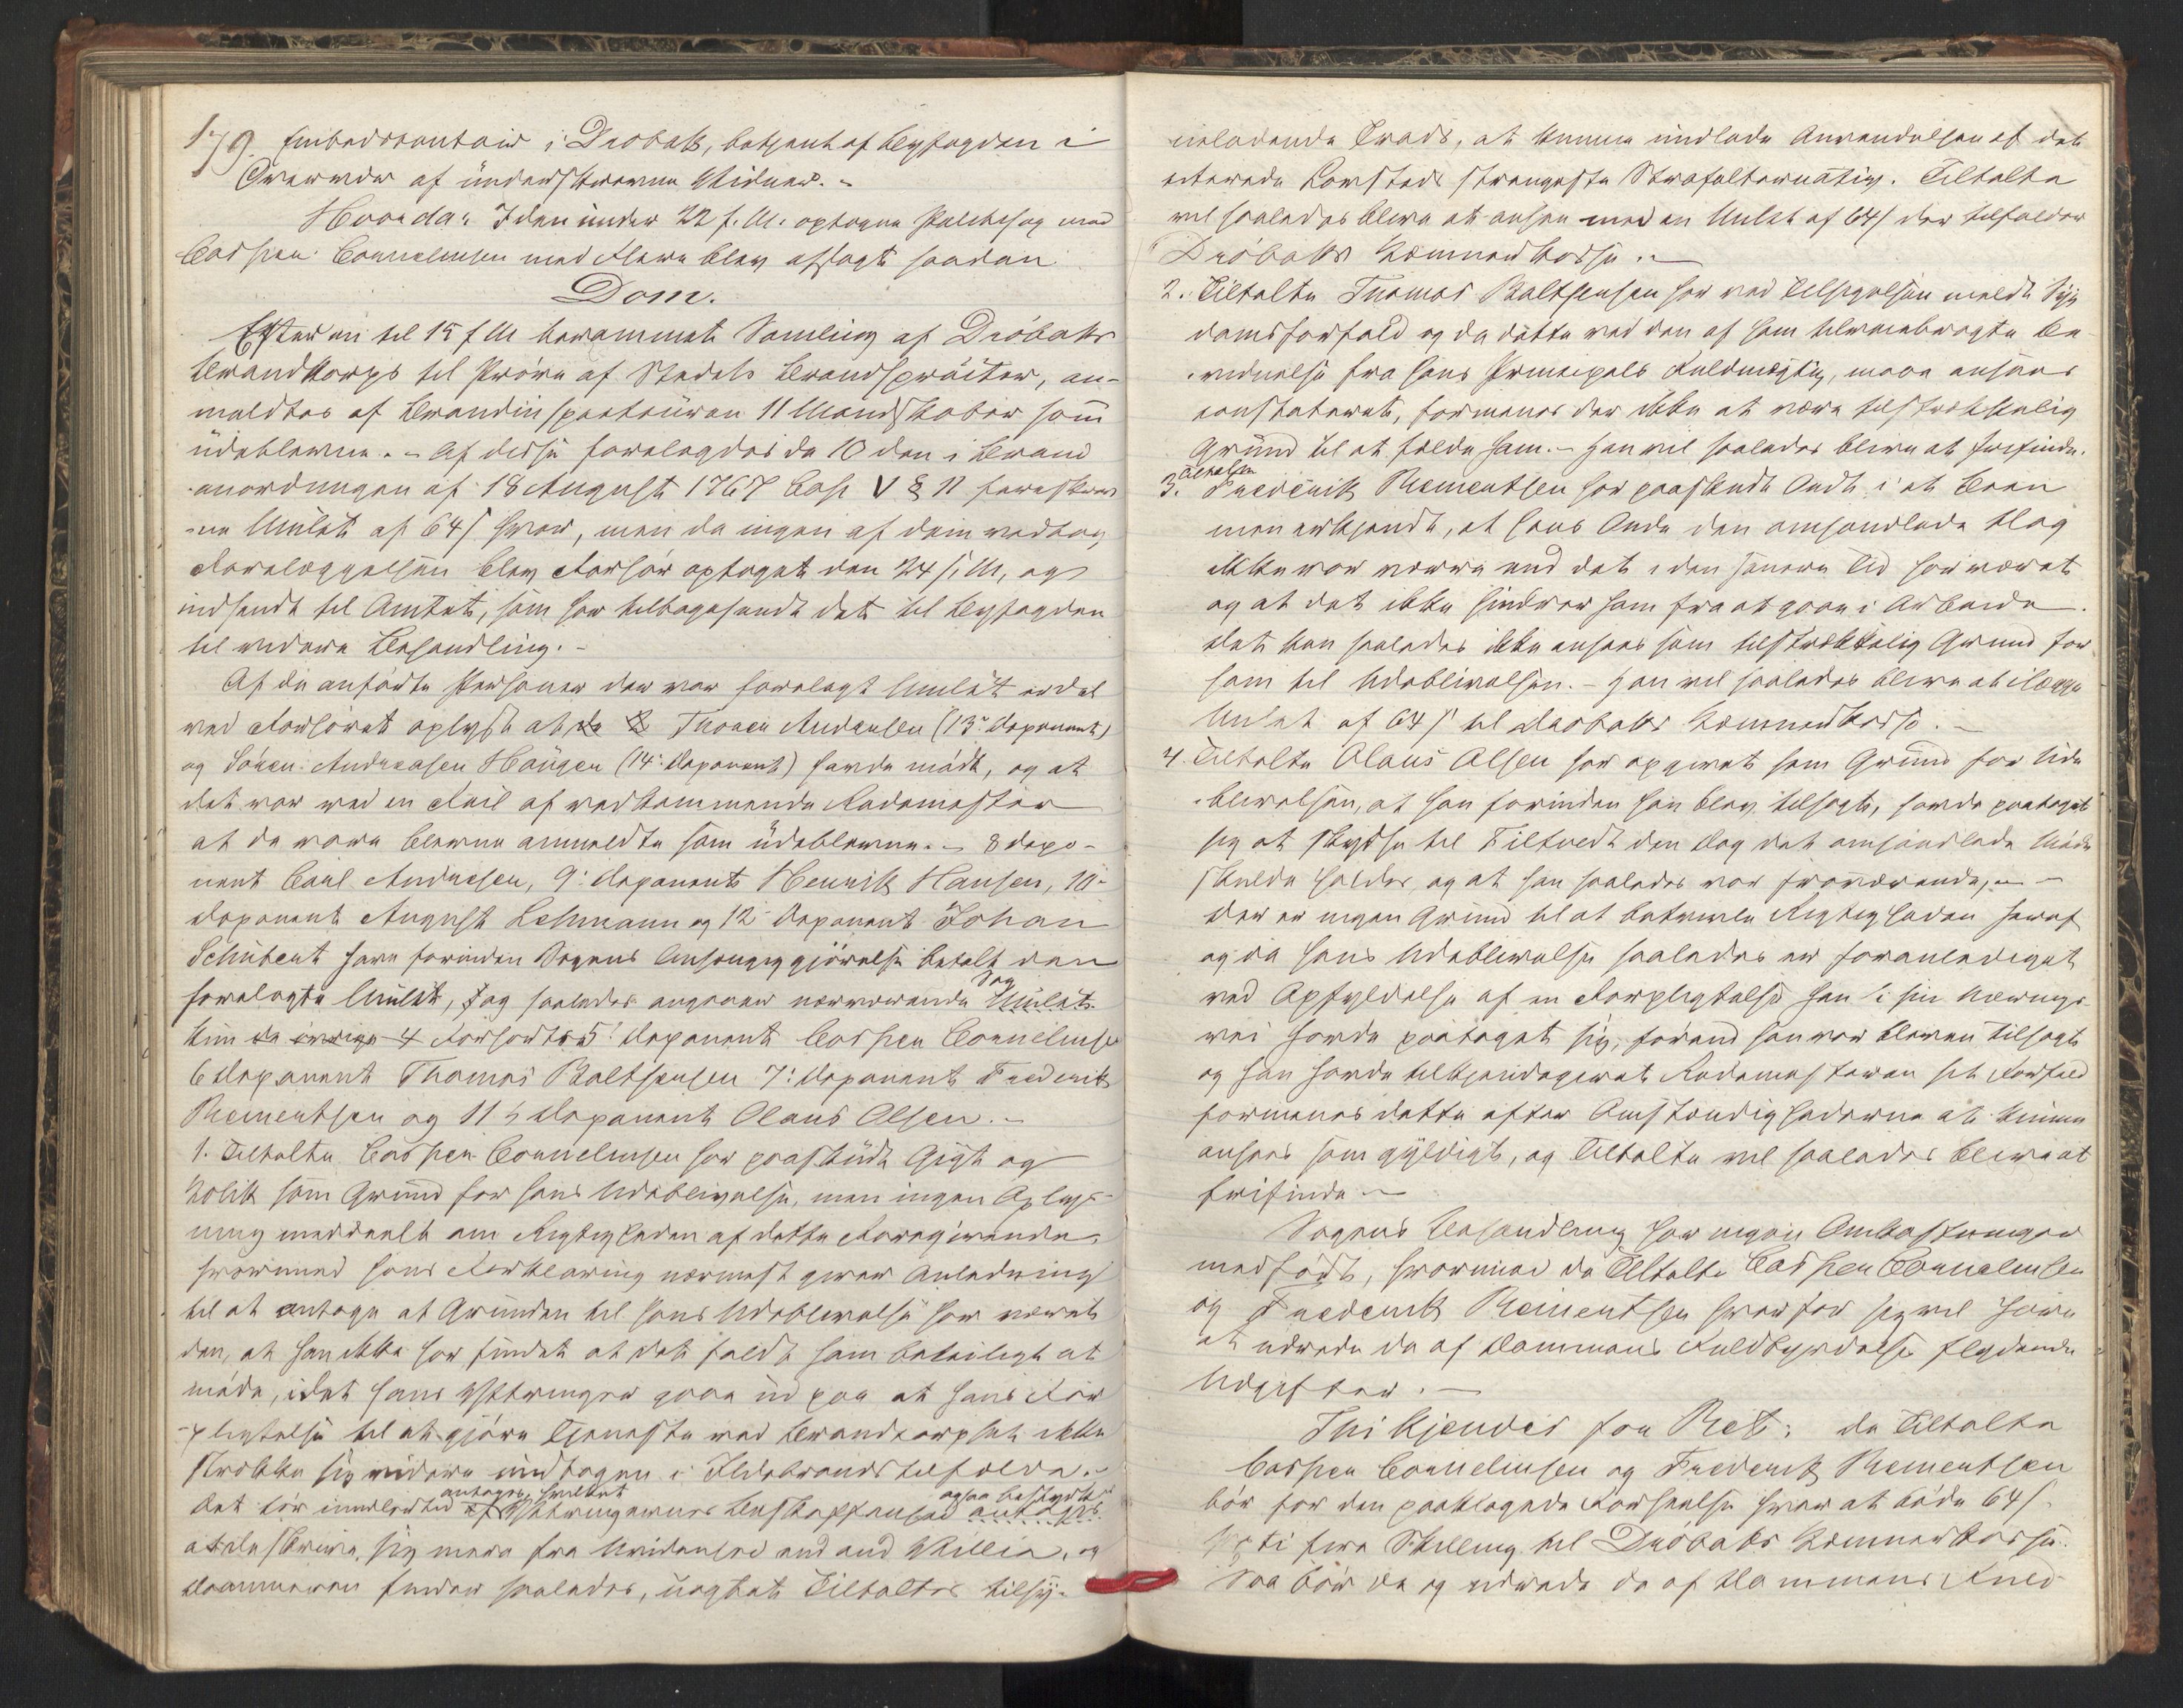 179. Embedscontoir i Drøbak, betjent af Byfogden i
Overvær af underskrevne Vidner. –
Hvorda: I den under 22 f. M. optagne Politisag mod
Casper Corneliusen med Flere blev afsagt saadan
Dom.
Efter en til 15 f M berammet Samling af Drøbaks
Brandkorps til Prøve af Stedets Brandsprøiter, an-
meldtes af Brandinspecteuren 11 Mandskaber som
udeblevne. – Af disse forelagdes de 10 den i Brand
anordningen af 18 August 1767 Cap V § 11 foreskrev
ne Mulct af 64 s hver, men da ingen af dem vedtog
Forelæggelsen blev Forhør optaget den 24 f. M, og
indsendt til Amtet, som har tilbagesendt det til Byfogden
til videre Behandling. –
Af de anførte Personer der var forelagt Mulct er det
ved Forhøret oplyst at Thoren Andersen (13de Deponent)
og Søren Andreasen Haugen (14de Deponent) havde mødt, og at
det var ved en Feil af vedkommende Rodemester
at de vare blevne anmeldte som udeblevne. – 8 Depo-
nent Carl Andresen, 9de Deponent Henrik Hansen, 10de
Deponent August Lehmann og 12te Deponent Johan
Schubert have forinden Sagens Anhængiggjørelse betalt den
forelagte Mulct, og saaledes angaaer nærværende Sag
kun de øvrige 4 Forhørte 5te Deponent Casper Corneliusen
6 Deponent Thomas Balthsensen 7de Deponent Frederik
Rementsen og 11te Deponent Olaus Olsen. –
1. Tiltalte Casper Corneliusen har paaskudt Gigt og
Kolik som Grund for hans Udeblivelse, men ingen Oplys-
ning meddeelt om Rigtigheden af dette Foregivende,
hvorimod hans Forklaring nærmest giver Anledning
til at antage at Grunden til hans Udeblivelse har været
den, at han ikke har fundet at det faldt ham beleiligt at
møde, idet hans Yttringer gaae ud paa at hans For
pligtelse til at gjøre Tjeneste ved Brandcorpset ikke
strække sig videre undtagen i Ildebrandstilfælde. –
Det tør imidlertid antages, hvilket Yttringernes Beskaffenhed ogsaa bestyrker
at de skrive sig mere fra Uvidenhed end ond Villie, og
Dommeren finder saaledes, uagtet Tiltaltes tilsy-
neladende Trods, at kunne undlade Anvendelsen af det
citerede Lovsteds strengeste Strafalternativ. Tiltalte
vil saaledes blive at ansee med en Mulct af 64 s der tilfalder
Drøbaks Kæmnerkasse. –
2. Tiltalte Thomas Balthsensen har ved Tilsigelsen meldt Syg
domsforfald og da dette ved den af ham tilveiebragte Be
vidnelse fra hans Principals Fuldmægtig, maa ansees
constateret, formenes der ikke at være tilstrækkelig
Grund til at fælde ham. – Han vil saaledes blive at frifinde.
3. Tiltalte Frederik Rementsen har paaskudt Ondt i et Been
men erkjendt, at hans Onde den omhandlede Dag
ikke var værre end det i den senere Tid har været
og at det ikke hindrer ham fra at gaae i Arbeide.
Det kan saaledes ikke ansees som tilstrækkelig Grund for
ham til Udeblivelsen. – Han vil saaledes blive at ilægge
Mulct af 64 s til Drøbaks Kæmnerkasse. –
4. Tiltalte Olaus Olsen har opgivet som Grund for Ude
blivelsen, at han forinden han blev tilsagt, havde paataget
sig at skydse til Filtvedt den Dag det omhandlede Møde
skulde holdes, og at han saaledes var fraværende, –
Der er ingen Grund til at betvivle Rigtigheden heraf
og da hans Udeblivelse saaledes er foranlediget
ved Opfyldelse af en Forpligtelse han i sin Nærings
vei havde paataget sig, førend han var bleven tilsagt
og han havde tilkjendegivet Rodemesteren sit Forfald
formenes dette efter Omstændighederne at kunne
ansees som gyldigt, og Tiltalte vil saaledes blive at
frifinde –
Sagens Behandling har ingen Omkostninger
medført, hvorimod de Tiltalte Casper Corneliusen
og Frederik Rementsen hver for sig vil have
at udrede de af Dommens Fuldbyrdelse flydende
Udgifter. –
Thi kjendes for Ret: de Tiltalte
Casper Corneliusen og Frederik Rementsen
bør for den paaklagede Forseelse hver at bøde 64 s
ti fire Skilling til Drøbaks Kæmnerkasse.
Saa bør de og udrede de af Dommens Fuld